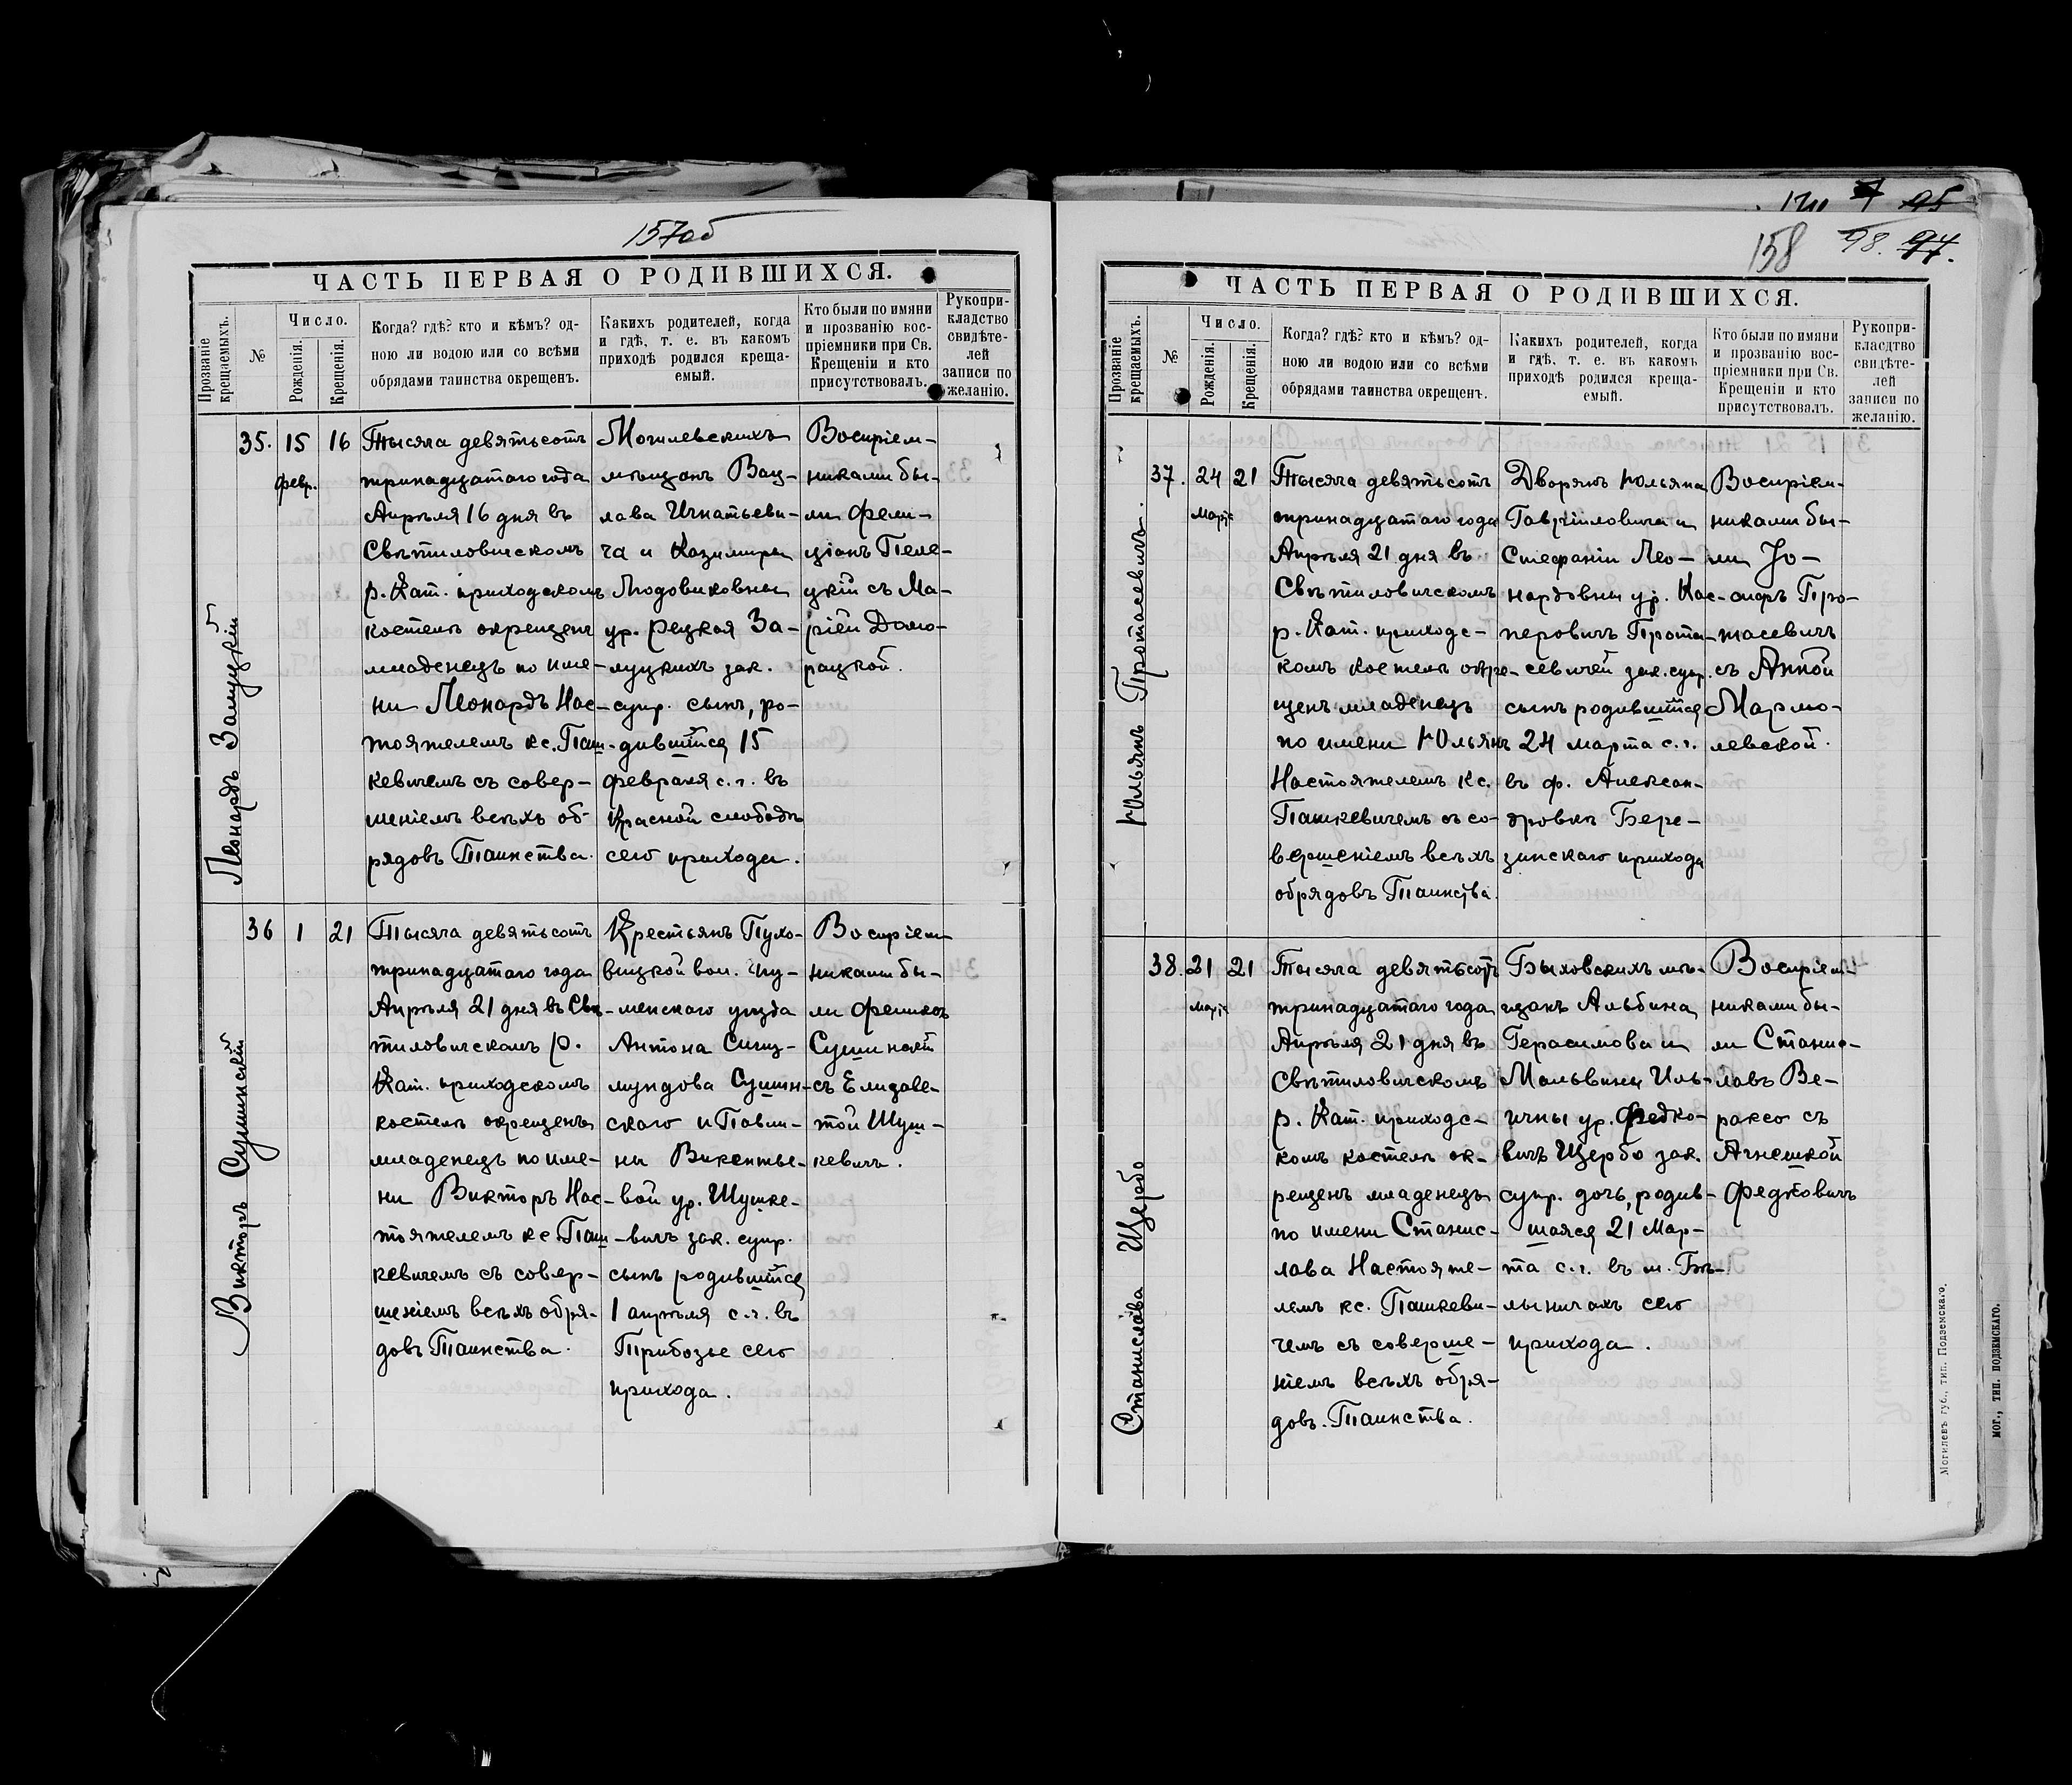 157об
ЧАСТЬ ПЕРВАЯ О РОДИВШИХСЯ.
Прозваніе крещаемыхъ.
№
Число.
Рожденія.
Крещенія.
Когда? гдѣ? кто и кѣмъ? од-
ною ли водою или со всѣми
обрядами таинства окрещенъ.
Какихъ родителей, когда
и гдѣ, т. е. въ какомъ
приходѣ родился креща-
емый.
Кто были по имяни
и прозванію вос-
пріемники при Св.
Крещеніи и кто
присутствовалъ.
Рукопри-
кладство
свидѣте-
лей
записи по
желанію.
Леонардъ Залуцкій
35.
15
февр.
16
Тысяча девятьсотъ
тринадцатаго года
Апрѣля 16 дня въ
Свѣтиловичскомъ
р. Кат. приходскомъ
костелѣ окрещенъ
младенецъ по име-
ни Леонардъ Нас-
тоятелемъ кс. Паш-
кевичемъ съ совер-
шеніемъ всѣхъ об-
рядовъ Таинства.
Могилевскихъ
мѣщанъ Вац-
лава Игнатьеви-
ча и Казимиры
Людовиковны
ур. Рецкая За-
луцкихъ зак.
супр. сынъ, ро-
дившійся 15
февраля с. г. въ
Красной слободѣ
сего прихода.
Воспріем-
никами бы-
ли Фели-
ціанъ Пеле-
цкій съ Ма-
ріей Домо-
рацкой.
Викторъ Сушинскій
36
1
21
Тысяча девятьсотъ
тринадцатаго года
Апрѣля 21 дня въ Свѣ-
тиловичскомъ р.
Кат. приходскомъ
костелѣ окрещенъ
младенецъ по име-
ни Викторъ Нас-
тоятелемъ кс Паш-
кевичемъ съ совер-
шеніемъ всѣхъ обря-
довъ Таинства.
Крестьянъ Пухо-
вицкой вол. Игу-
менскаго уѣзда
Антона Сигиз-
мундова Сушин-
скаго и Павли-
ны Викентье-
вой ур. Шушке-
вичъ зак. супр.
сынъ родившійся
1 апрѣля с. г. въ
Трибозье сего
прихода.
Воспріем-
никами бы-
ли Феликсъ
Сушинскій
съ Елизаве-
той Шуш-
кевичъ.
158
98.
97.
95
ЧАСТЬ ПЕРВАЯ О РОДИВШИХСЯ.
Прозваніе крещаемыхъ.
№
Число.
Рожденія.
Крещенія.
Когда? гдѣ? кто и кѣмъ? од-
ною ли водою или со всѣми
обрядами таинства окрещенъ.
Какихъ родителей, когда
и гдѣ, т. е. въ какомъ
приходѣ родился креща-
емый.
Кто были по имяни
и прозванію вос-
пріемники при Св.
Крещеніи и кто
присутствовалъ.
Рукопри-
класдтво
свидѣте-
лей
записи по
желанію.
Юльянъ Протасевичъ.
37.
24
март
21
Тысяча девятьсотъ
тринадцатаго года
Апрѣля 21 дня въ
Свѣтиловичскомъ
р. Кат. приходс-
комъ костелѣ окре-
щенъ младенецъ
по имени Юльянъ
Настоятелемъ Кс.
Пашкевичемъ съ со-
вершеніемъ всѣхъ
обрядовъ Таинства.
Дворянъ Юльяна
Гавріиловича и
Стефаніи Лео-
нардовны ур. Кас-
перовичъ Прота-
севичей зак. супр.
сынъ родившійся
24 марта с. г.
въ ф. Алексан-
дровкѣ Бере-
зинскаго прихода
Воспріем-
никами бы-
ли Іо-
сифъ Про-
тасевичъ
съ Анной
Мармо-
левской.
Станислава Щербо
38.
21
март
21
Тысяча девятьсотъ
тринадцатаго года
Апрѣля 21 дня въ
Свѣтиловичскомъ
р. Кат. приходс-
комъ костелѣ ок-
рещенъ младенецъ
по имени Станис-
лава Настояте-
лемъ кс. Пашкеви-
чемъ съ соверше-
ніемъ всѣхъ обря-
довъ. Таинства.
Быховскихъ мѣ-
щанъ Альбина
Герасимова и
Мальвины Иль-
ичны ур. Федко-
вичъ Щербо зак.
супр. дочь, родив-
шаяся 21 Мар-
та с. г. въ м. Бѣ-
лыничахъ сего
прихода.
Воспріем-
никами бы-
ли Стани-
лавъ Ве-
раксо съ
Агнешкой
Федковичъ
Могилевъ губ., тип. Подземскаго.
МОГ., ТИП. ПОДЗЕМСКАГО.